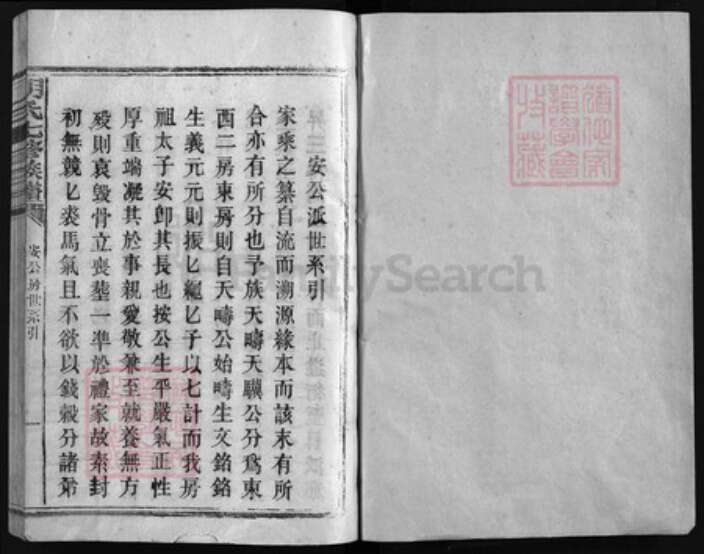 安公派世系引
家乘之纂自流而溯源緣本而該末有所
合亦有所分也予族天疇天驥公分爲東
西二房東房則自天疇公始疇生文銘銘
生義元元則振匕繩匕子以七計而我房
祖太子安卽其長也按公生平嚴氣正性
厚重端凝其於事親愛敬兼至就養無方
歿則哀毀骨立喪塟一準於禮家故素封
初無競匕裘馬氣且不欲以錢穀分諸弟
氏七修族譜
安公房世系引
一
FamilySearch